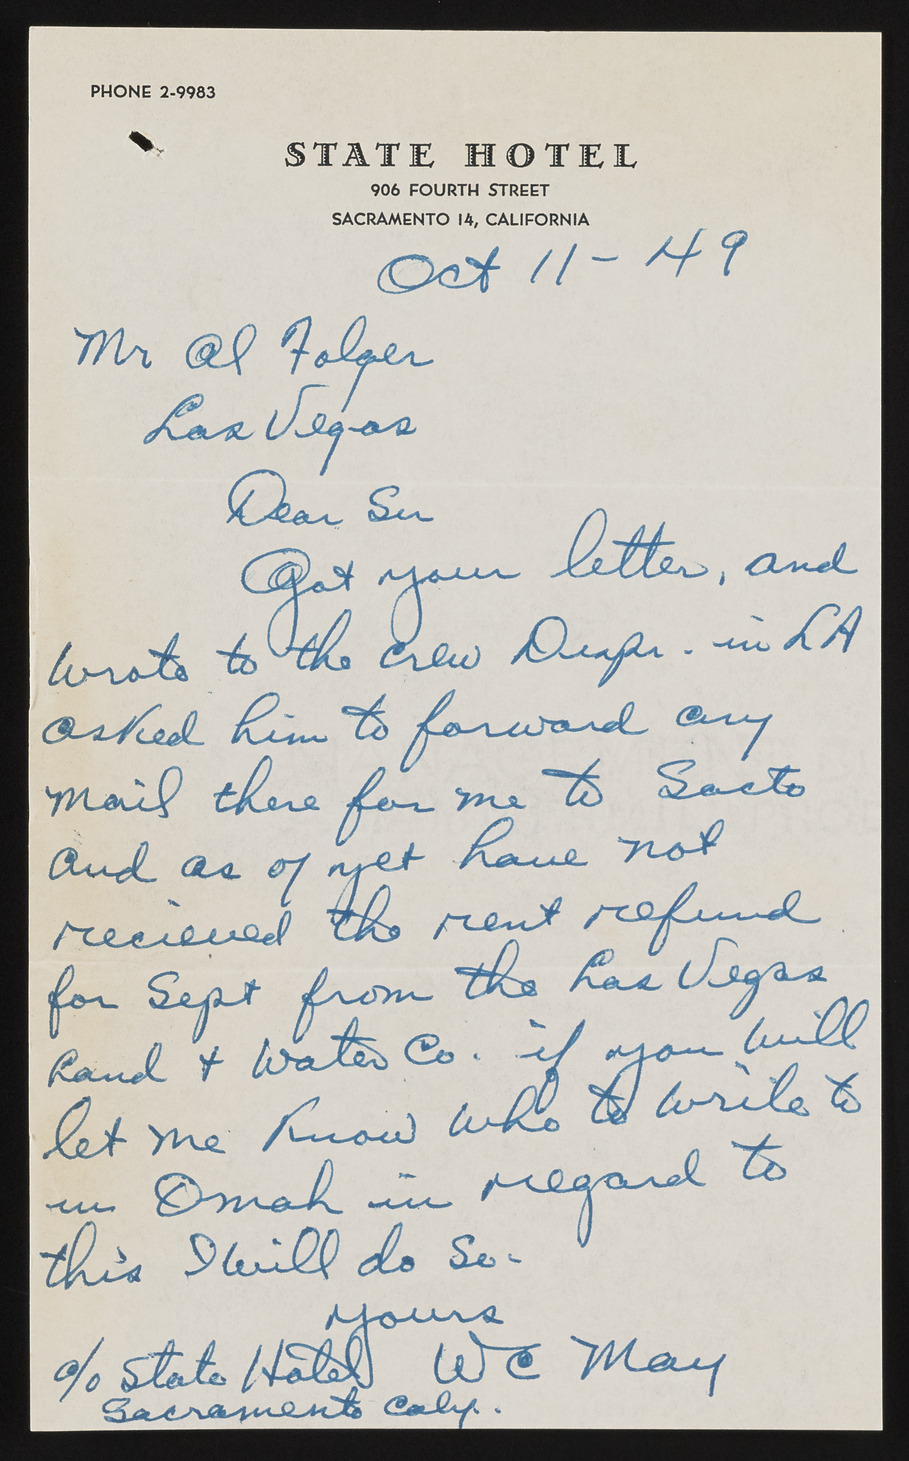 PHONE 2-9983
STATE HOTEL
906 FOURTH STREET
SACRAMENTO 14, CALIFORNIA
Oct 11 - 49
Mr Al Folger
Las Vegas
Dear Sir
Got your letter, and
wrote to the crew Dispr. in LA
asked him to forward any
mail there for me to Sacto
and as of yet have not
recieved the rent refund
for Sept from the Las Vegas
Land + Water Co. if you will
let me know who to write to
in Omah in regard to
this I will do so-
yours
c/o State Hotel W C May
Sacramento Caly.